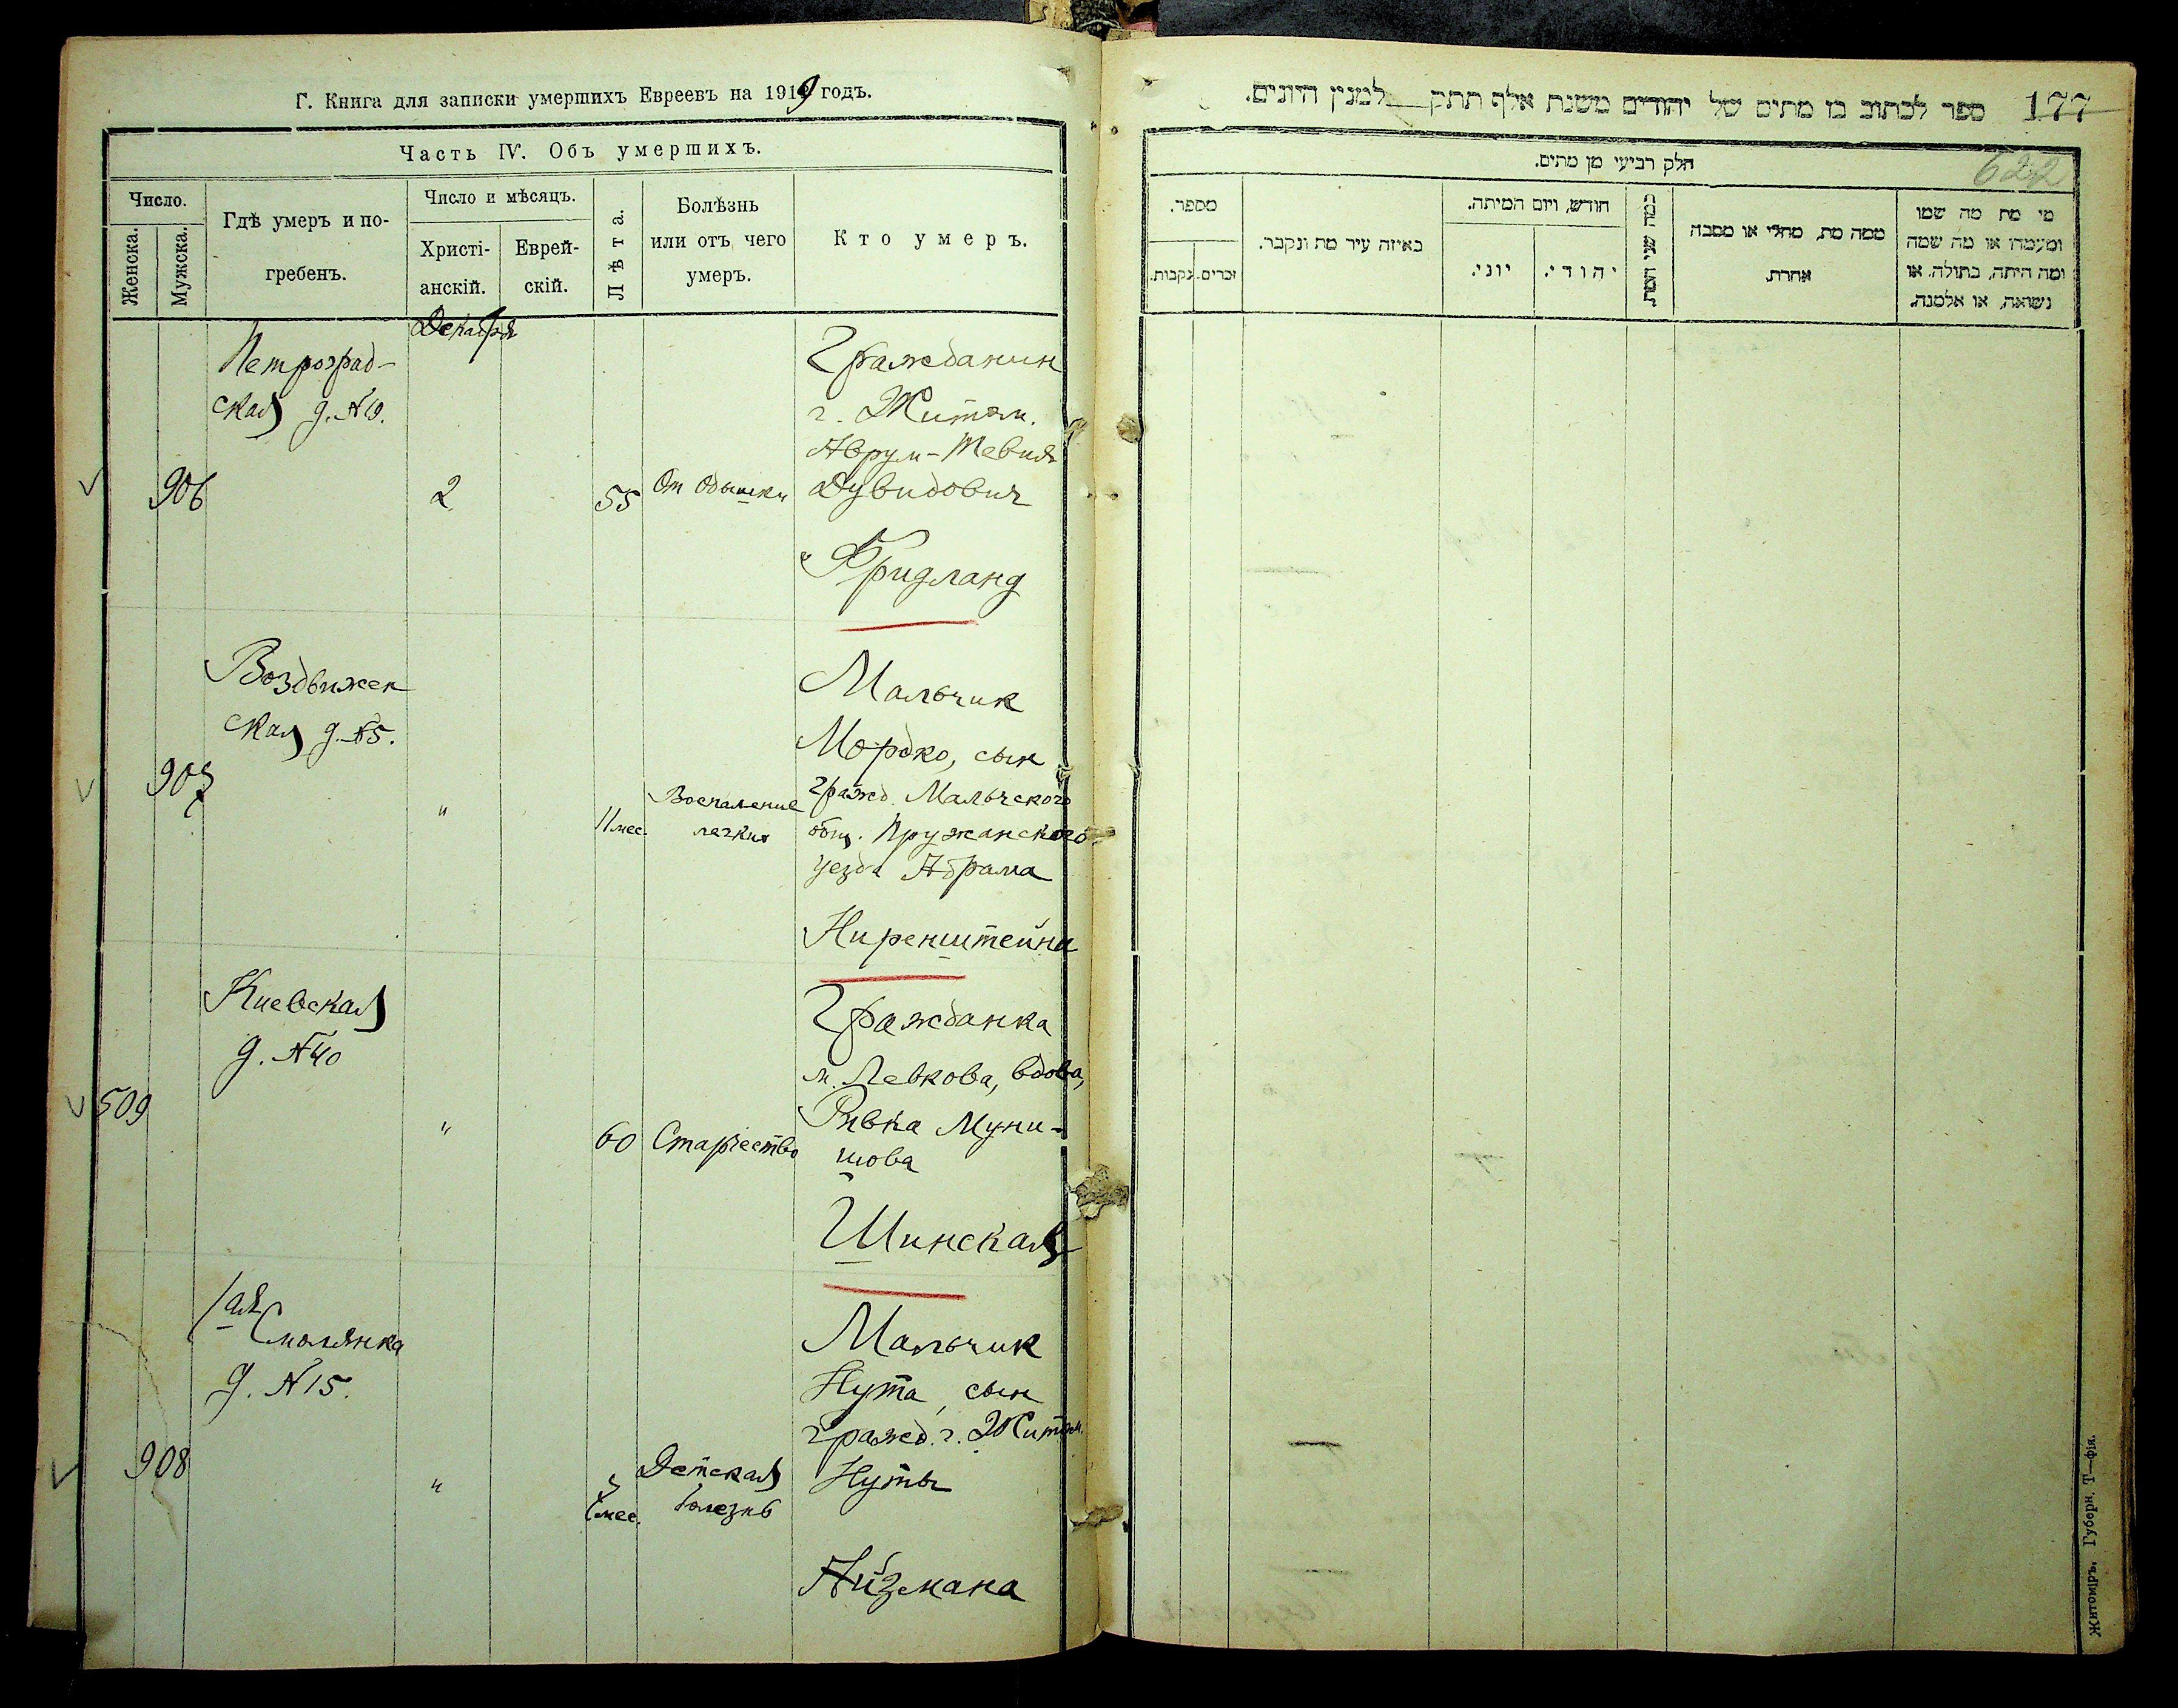 Г. Книга для записки умершихъ Евреевъ на 1919 годъ.
Часть IV. Объ умершихъ.
Число.
Женска.
Мужска.
Гдѣ умеръ и по-
гребенъ.
Число и мѣсяцъ.
Христі-
анскій.
Еврей-
скій.
Лѣта.
Болѣзнь
или отъ чего
умеръ.
Кто умеръ.
Декабря
906
Петроград-
ская д. №
2
55
От одышки
Гражданин
г. Житом.
Аврум-Тевия
Дувидович
Фридланд
907
Воздвижен
ская д. №5.
"
11 мес.
Воспаление
легких
Мальчик
Мордко, сын
гражд. Мальчского
общ. Пружанского
уезда Абрама
Ниренштейна
509
Киевская
д. №40
"
60
Старчество
Гражданка
м. Левкова, вдова,
Ривка Муни-
шова
Шинская
908
Смолянка
д. №15.
"
мес.
Детская
болезнь
Мальчик
Нута, сын
гражд. г. Житом.
Нуты
Айзмана
177
ספר לכתוב בו מתים של יהודים משנת אלף תתק למנין היונים.
622
חלק רביעי מן מתים.
מספר.
נקבות.
זכרים.
באיזה עיר מת ונקבר.
חודש, ויום המיתה.
יוני.
יהודי.
כמה שני המת
ממה מת, מחלי או מסבה
אחרת.
מי מת מה שמו
ומעמדו או מה שמה
ומה היתה, בתולה, או
נשואה, או אלמנה.
Житоміръ, Губерн. Т—фія.